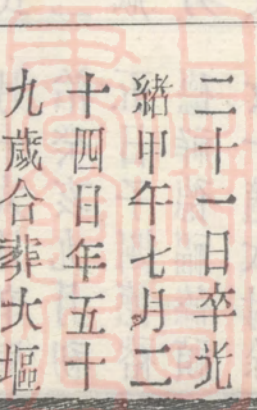 二十一日卒光
緒甲午七月二
十四日年五十
九歲合葬大塸